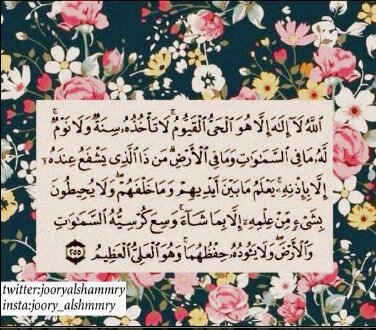 ٱللَّهُ لَآ إِلَٰهَ إِلَّا هُوَ ٱلْحَىُّ ٱلْقَيُّومُ ۚ لَا تَأْخُذُهُۥ سِنَةٌ وَلَا نَوْمٌ ۚ
لَّهُۥ مَا فِى ٱلسَّمَٰوَٰتِ وَمَا فِى ٱلْأَرْضِ ۗ مَن ذَا ٱلَّذِى يَشْفَعُ عِندَهُۥٓ
إِلَّا بِإِذْنِهِۦ ۚ يَعْلَمُ مَا بَيْنَ أَيْدِيهِمْ وَمَا خَلْفَهُمْ ۖ وَلَا يُحِيطُونَ
بِشَىْءٍ مِّنْ عِلْمِهِۦٓ إِلَّا بِمَا شَآءَ ۚ وَسِعَ كُرْسِيُّهُ ٱلسَّمَٰوَٰتِ
وَٱلْأَرْضَ ۖ وَلَا يَـُٔودُهُۥ حِفْظُهُمَا ۚ وَهُوَ ٱلْعَلِىُّ ٱلْعَظِيمُ ٢٥٥
twitter:jooryalshammry
insta:joory_alshmmry